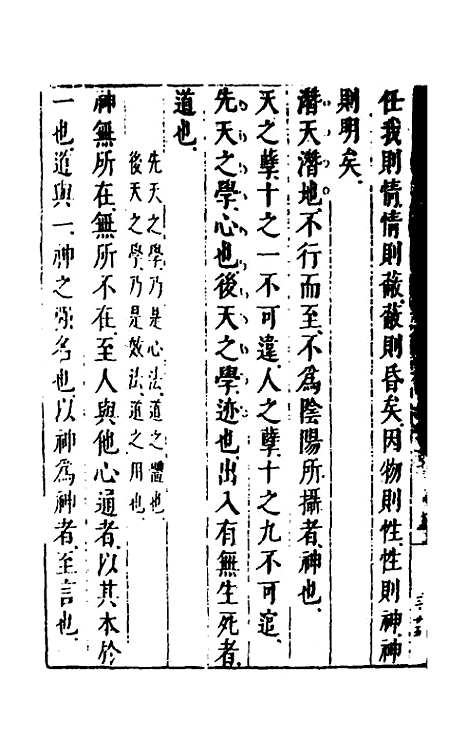 任我則情情則蔽蔽則昏矣因物則性性則神神
則明矣
潛天潛地不行而至不爲陰陽所攝者神也
天之孽十之一不可違人之孽十之九不可逭
先天之學心也後天之學迹也出入有無生死者
道也
先天之學乃是心法道之體也
後天之學乃是效法道之用也
神無所在無所不在至人與他心通者以其本於
一也道與一神之强名也以神爲神者至言也